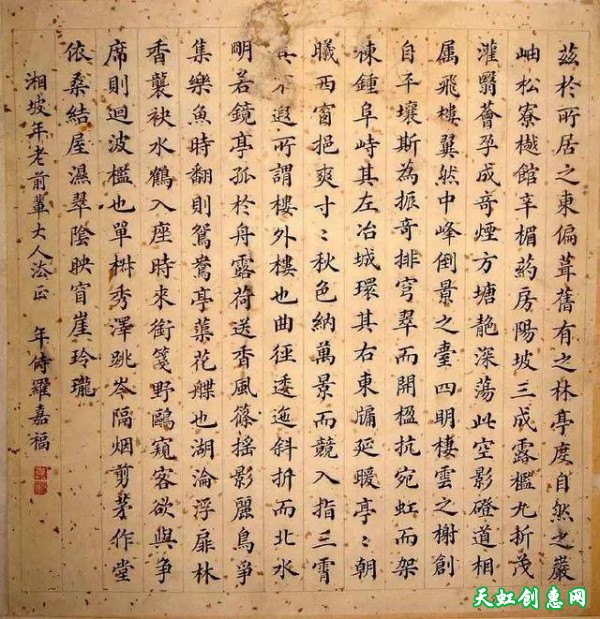 茲於所居之東偏葺舊有之林亭度自然之巖
岫松寮樾館辛楣葯房陽坡三成露檻九折茂
灌翳薈孕成奇煙方塘靘深蕩此空影磴道相
属飛樓翼然中峰倒景之臺四明棲雲之榭創
自平壤斯為振奇排穹翠而開楹抗宛虹而架
棟鍾阜峙其左冶城環其右東牖延暖亭〻朝
曦西窗挹爽寸〻秋色納萬景而競入指三霄
其不遐所謂樓外樓也曲徑逶迤斜折而北水
明若鏡亭孤於舟露荷送香風篠搖影麗鳥爭
集樂魚時翻則鴛鴦亭蕖花艓也湖淪浮扉林
香襲袂水鶴入座時來銜箋野鷗窺客欲與爭
席則迴波檻也單椒秀澤跳岑隔烟剪茅作堂
依桑結屋濕翠陰映窅崖玲瓏
湘坡年老前輩大人法正 年侍羅嘉福
天虹创意网